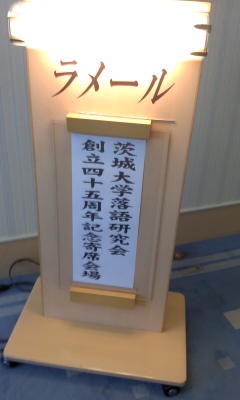 ラメール
茨城大学落語研究会
創立四十五周年記念寄席会場